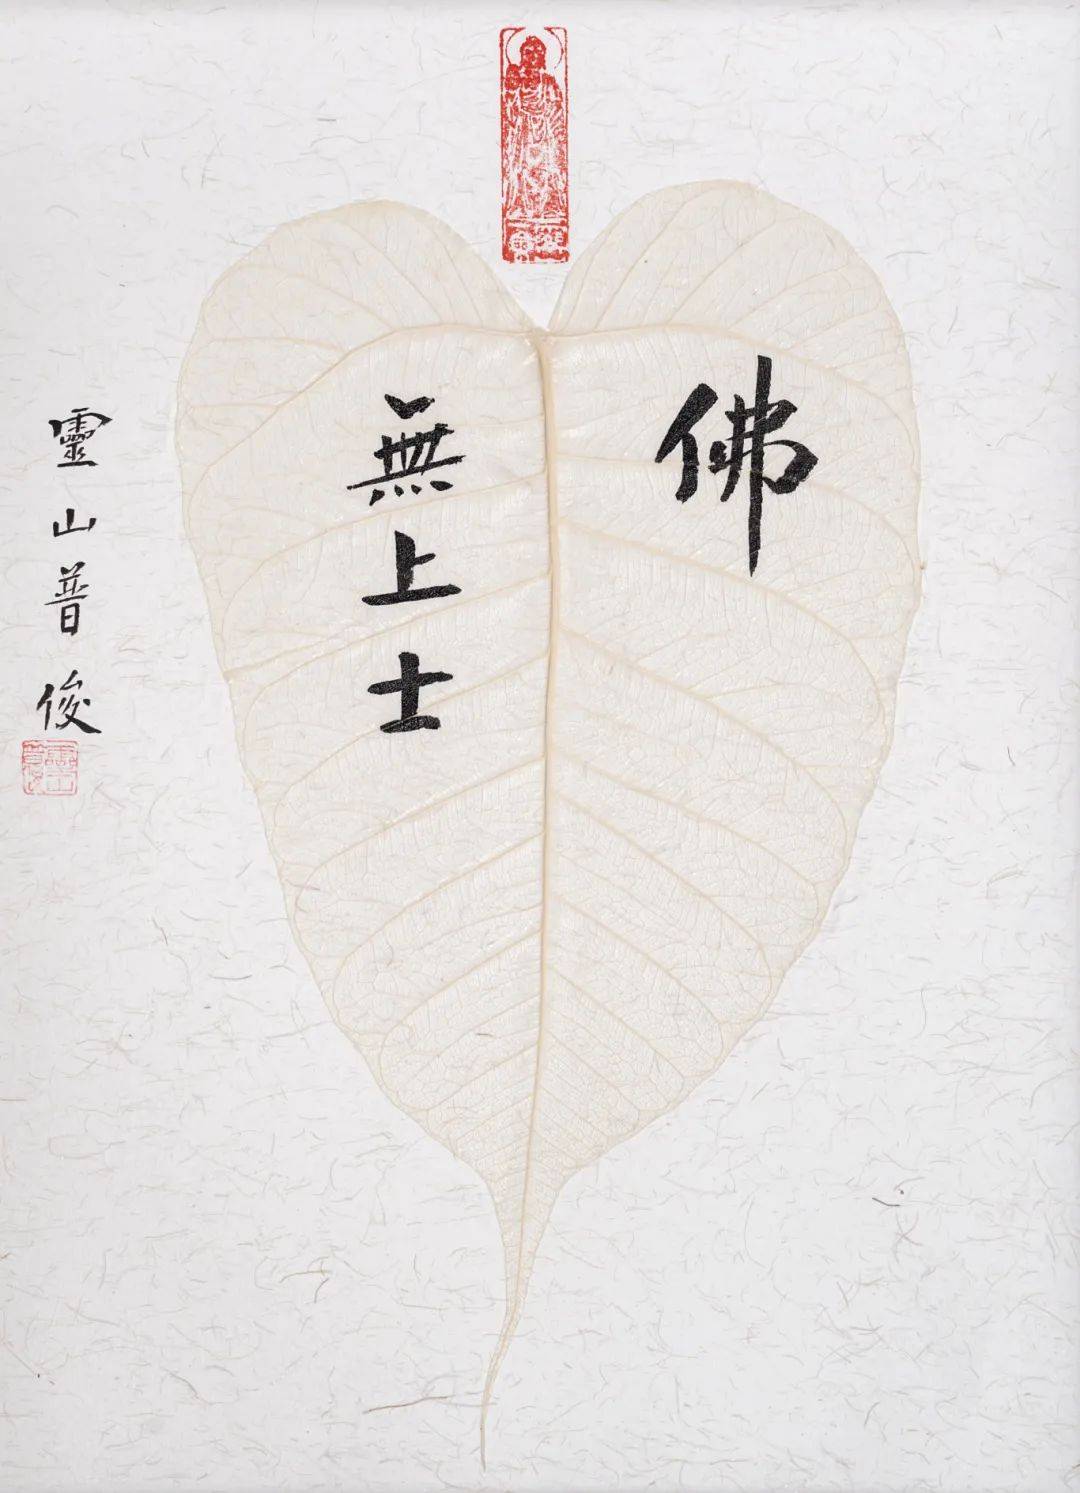 佛
無上士
靈山普俊